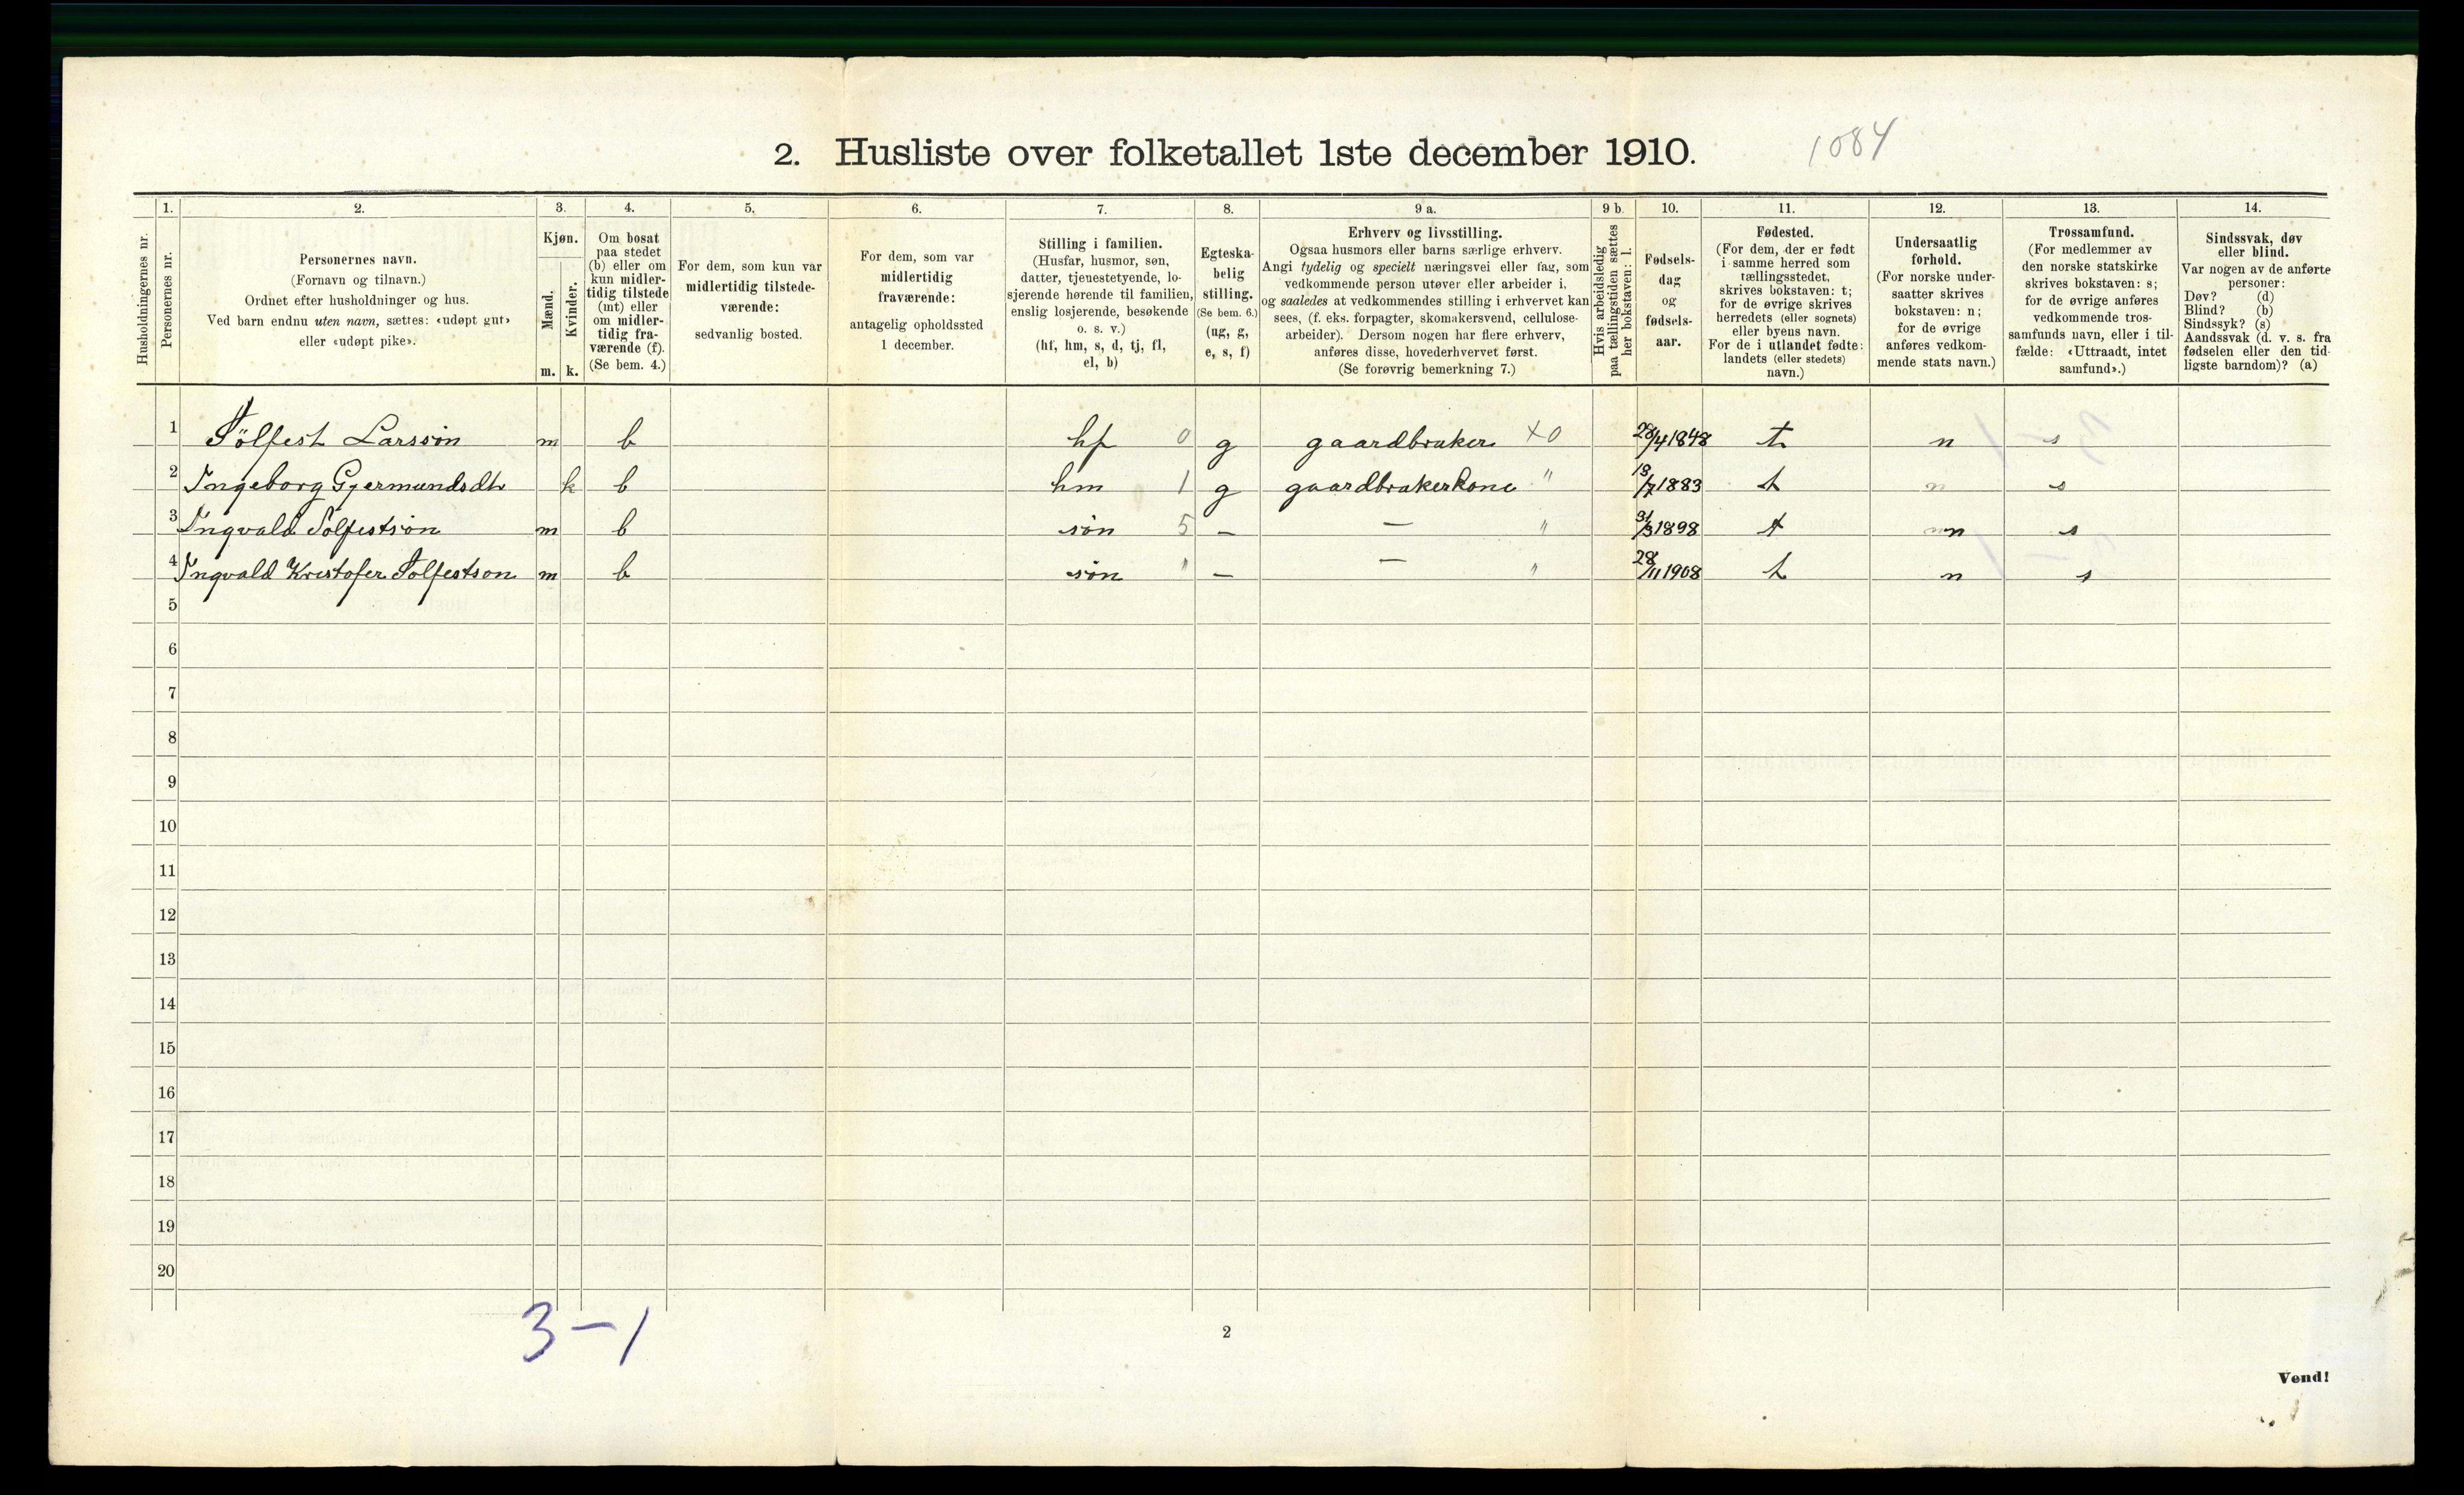 2. Husliste over folketallet 1ste december 1910.
1084
1.
2.
3.
4.
5.
6.
7.
8.
9 a.
9 b.
10.
11.
12.
13.
14.
Husholdningernes nr.
Personernes nr.
Personernes navn.
(Fornavn og tilnavn.)
Ordnet efter husholdninger og hus.
Ved barn endnu uten navn, sættes: «udøpt gut»
eller «udøpt pike».
Kjøn.
Mænd.
Kvinder.
m. k.
Om bosat
paa stedet
(b) eller om
kun midler-
tidig tilstede
(mt) eller
om midler-
tidig fra-
værende (f).
(Se bem. 4.)
For dem, som kun var
midlertidig tilstede-
værende:
sedvanlig bosted.
For dem, som var
midlertidig
fraværende:
antagelig opholdssted
1 december.
Stilling i familien.
(Husfar, husmor, søn,
datter, tjenestetyende, lo-
sjerende hørende til familien,
enslig losjerende, besøkende
o. s. v.)
(hf, hm, s, d, tj, fl,
el, b)
Egteska-
belig
stilling.
(Se bem. 6.)
(ug, g,
e, s, f)
Erhverv og livsstilling.
Ogsaa husmors eller barns særlige erhverv.
Angi tydelig og specielt næringsvei eller fag, som
vedkommende person utøver eller arbeider i,
og saaledes at vedkommendes stilling i erhvervet kan
sees, (f. eks. forpagter, skomakersvend, cellulose-
arbeider). Dersom nogen har flere erhverv,
anføres disse, hovederhvervet først.
(Se forøvrig bemerkning 7.)
Hvis arbeidsledig
paa tællingstiden sættes
her bokstaven: l.
Fødsels-
dag
og
fødsels-
aar.
Fødested.
(For dem, der er født
i samme herred som
tællingsstedet,
skrives bokstaven: t;
for de øvrige skrives
herredets (eller sognets)
eller byens navn.
For de i utlandet fødte:
landets (eller stedets)
navn.)
Undersaatlig
forhold.
(For norske under-
saatter skrives
bokstaven: n;
for de øvrige
anføres vedkom-
mende stats navn.)
Trossamfund.
(For medlemmer av
den norske statskirke
skrives bokstaven: s;
for de øvrige anføres
vedkommende tros-
samfunds navn, eller i til-
fælde: «Uttraadt, intet
samfund».)
Sindssvak, døv
eller blind.
Var nogen av de anførte
personer:
Døv? (d)
Blind? (b)
Sindssyk? (s)
Aandssvak (d. v. s. fra
fødselen eller den tid-
ligste barndom)? (a)
1 Sölfest Larssön m b hf 0 g gaardbruker X0 28/4 1848 t n s
2 Ingeborg Gjermundsdtr k b hm 1 g gaardbrukerkone " 13/7 1883 t n s
3 Ingvald Sölfestsön m b sön 5 – – " 31/3 1898 t n s
4 Ingvald Kristofer Solfestson m b sön " – – " 28/11 1908 t n s
5
6
7
8
9
10
11
12
13
14
15
16
17
18
19
20
3–1
2
Vend!